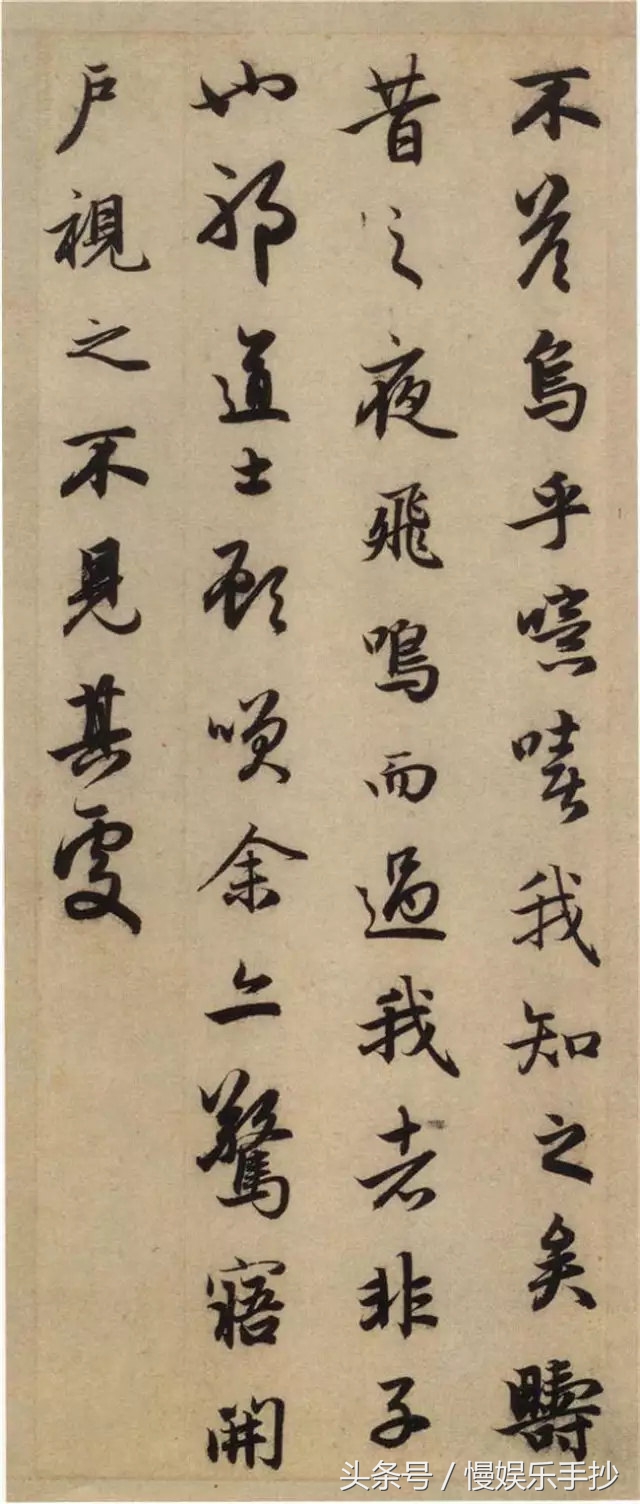 不荅烏乎噫嘻我知之矣疇
昔之夜飛鳴而過我者非子
也邪道士顧咲余亦驚寤開
戶視之不見其處
头条号 / 慢娱乐手抄